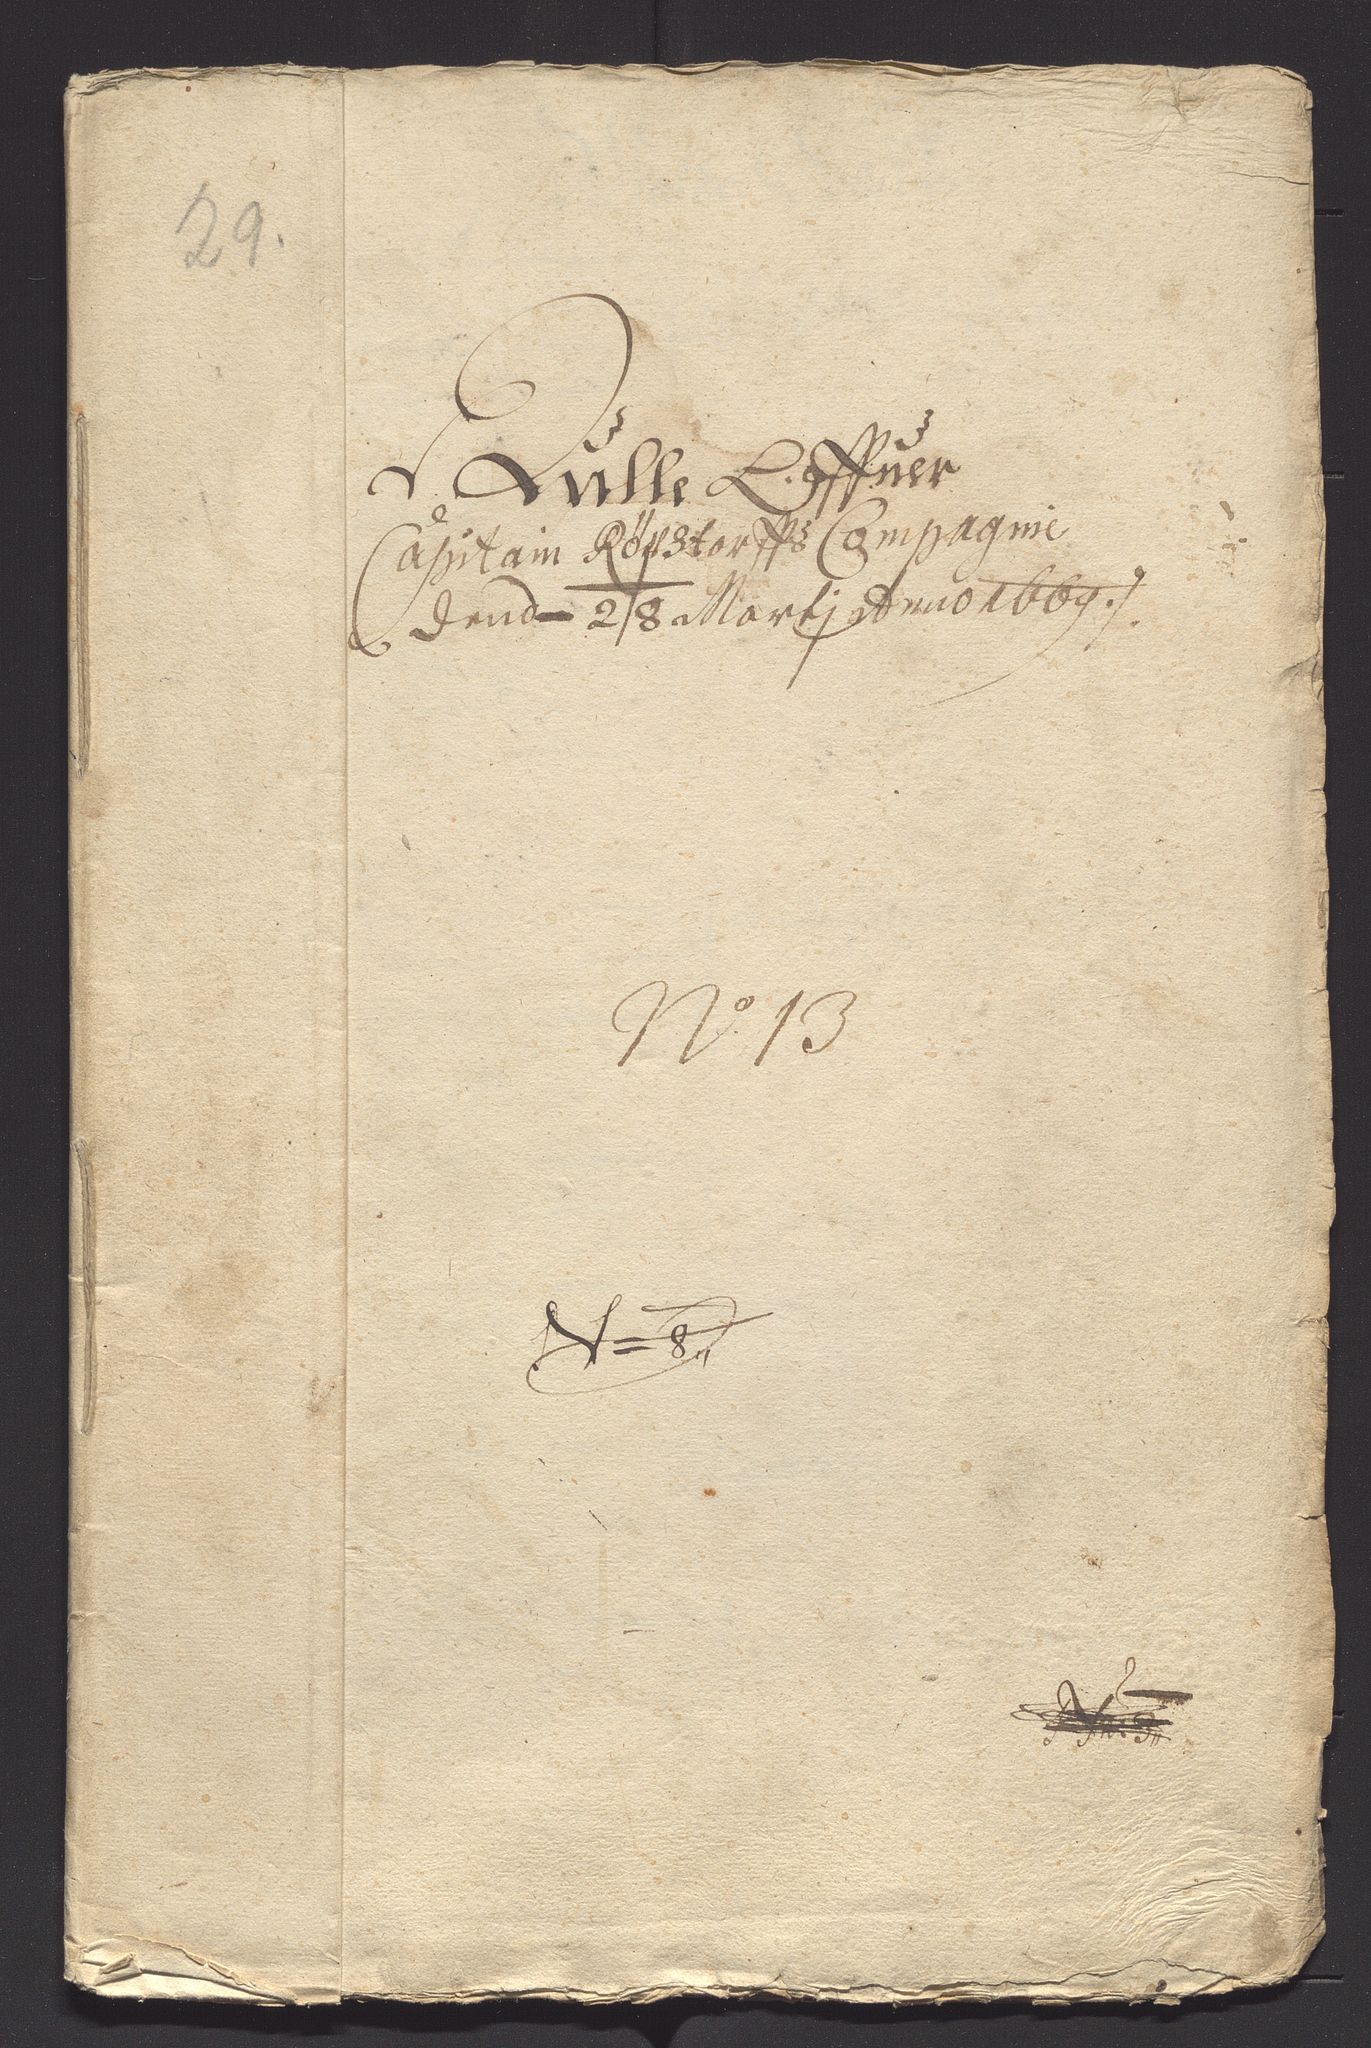 29.
Rulle Offuer
Capitain Röpstorffs Compagnie
dend 28 Martij Anno 1669.
No 13
N = 8